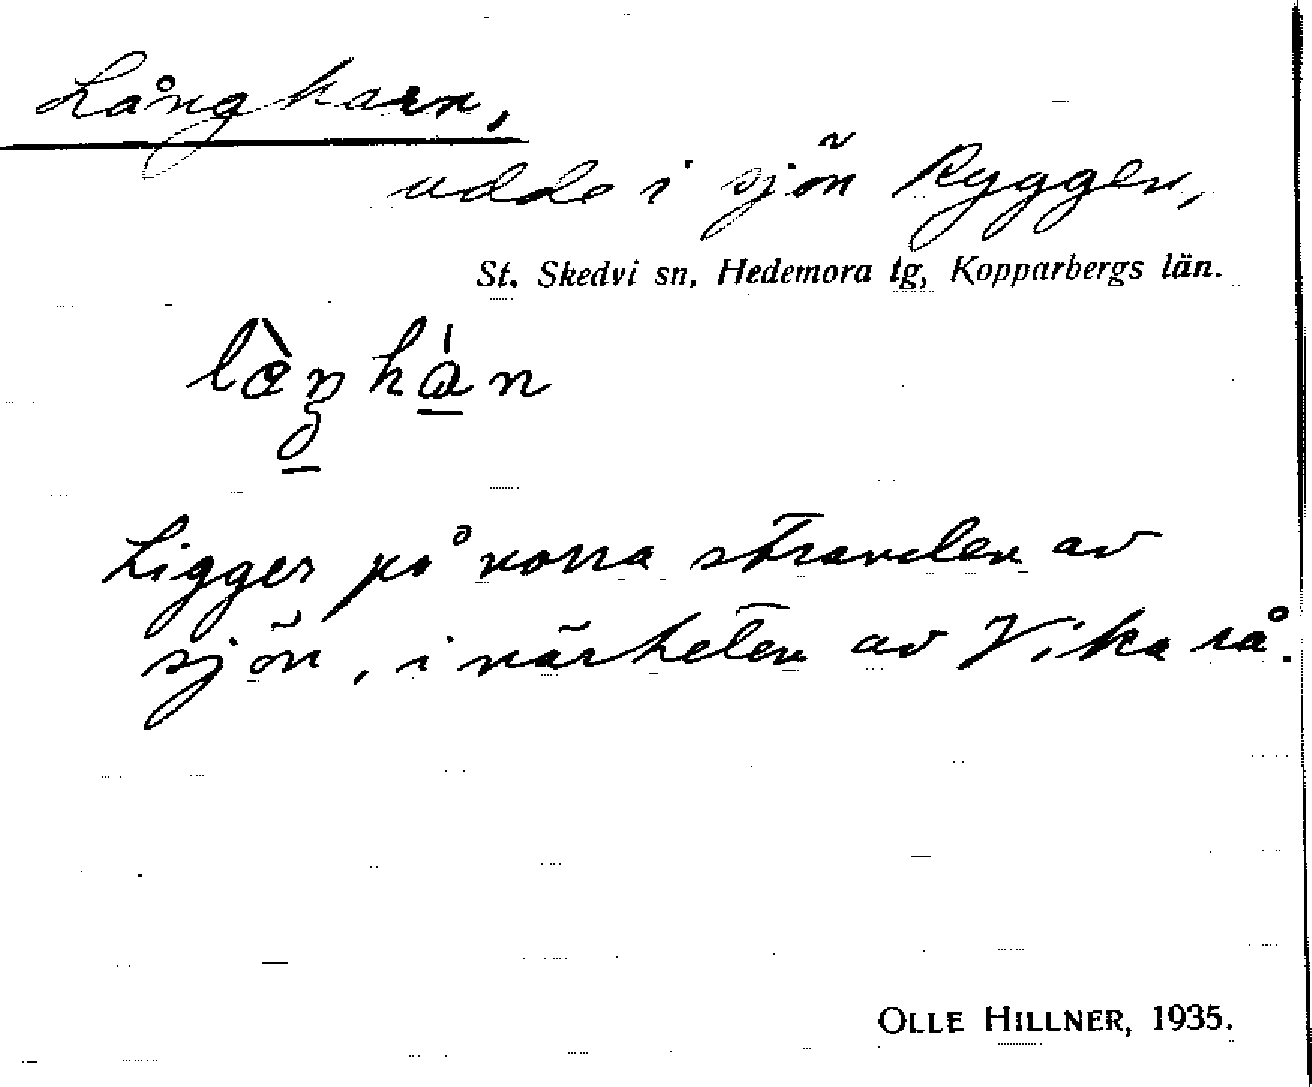 Långkarn,
udde i sjön Ryggen,
St. Skedvi sn, Hedemora tg, Kopparbergs län.
Ligger på norra stranden av
sjön, i närheten av Vika rå.
OLLE HILLNER, 1935.